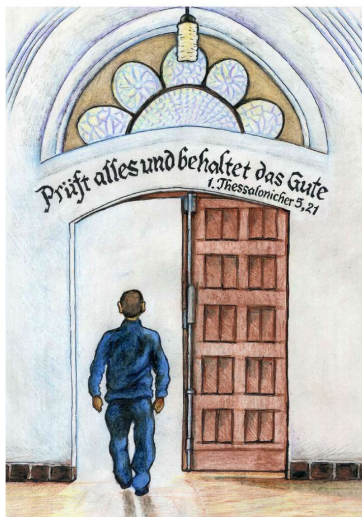 Prüft alles und behaltet das Gute
1. Thessalonicher 5,21